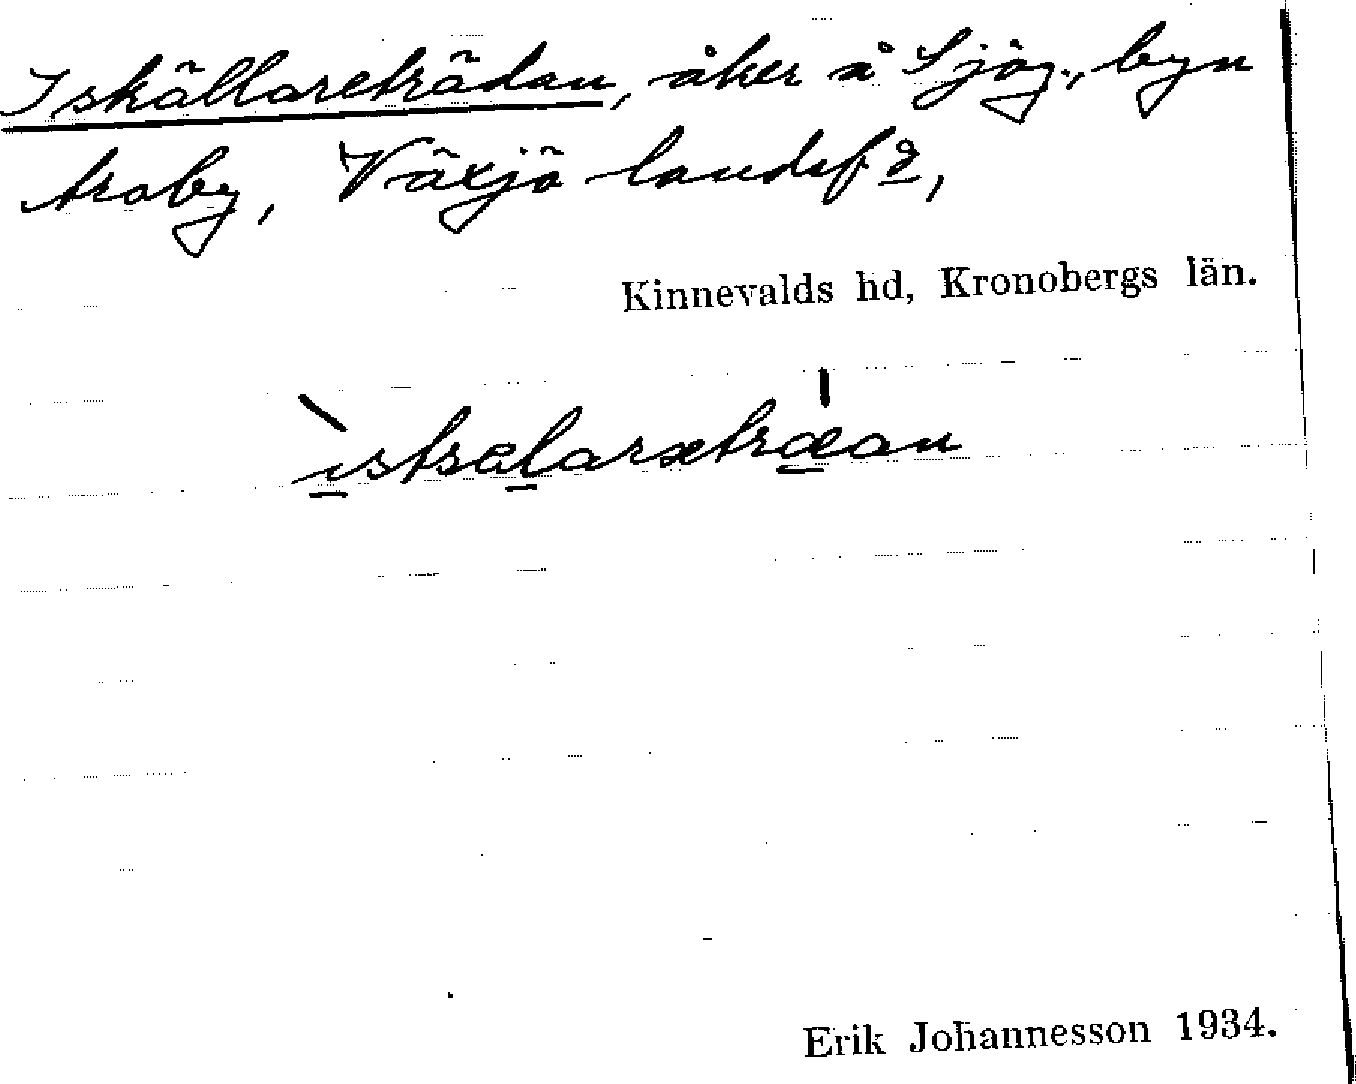 Iskällareträdan, åker å Sjög., byn
Araby, Växjö landsf.,
Kinnevalds hd, Kronobergs län.
Erik Johannesson 1934.